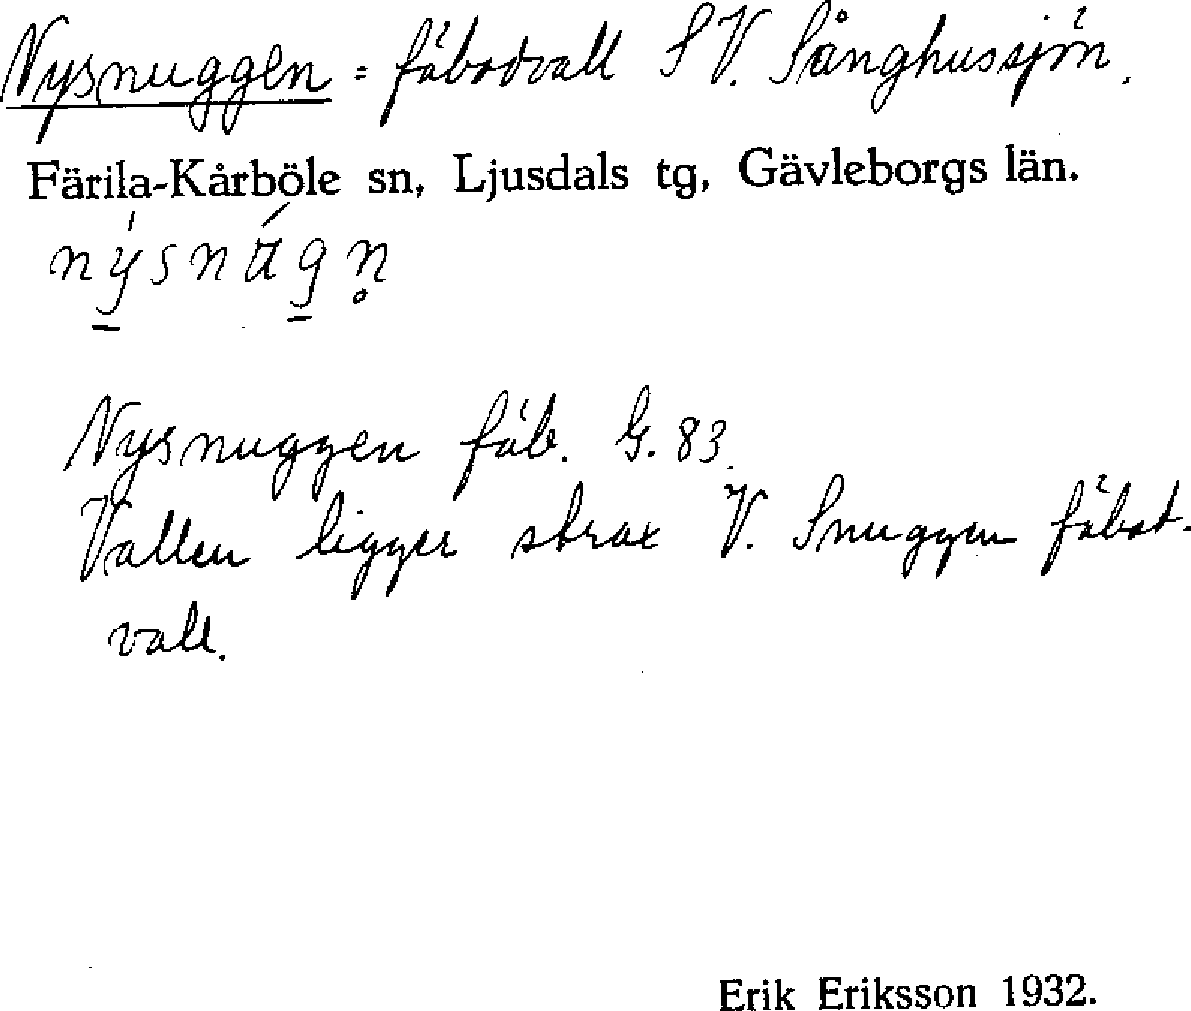 Nysnuggen = fäbodvall SV. Sånghussjön.
Färila-Kårböle sn, Ljusdals tg, Gävleborgs län.
Nysnuggen fäb. G. 83.
Vallen ligger strax V. Snuggen fäbod-
vall.
Erik Eriksson 1932.